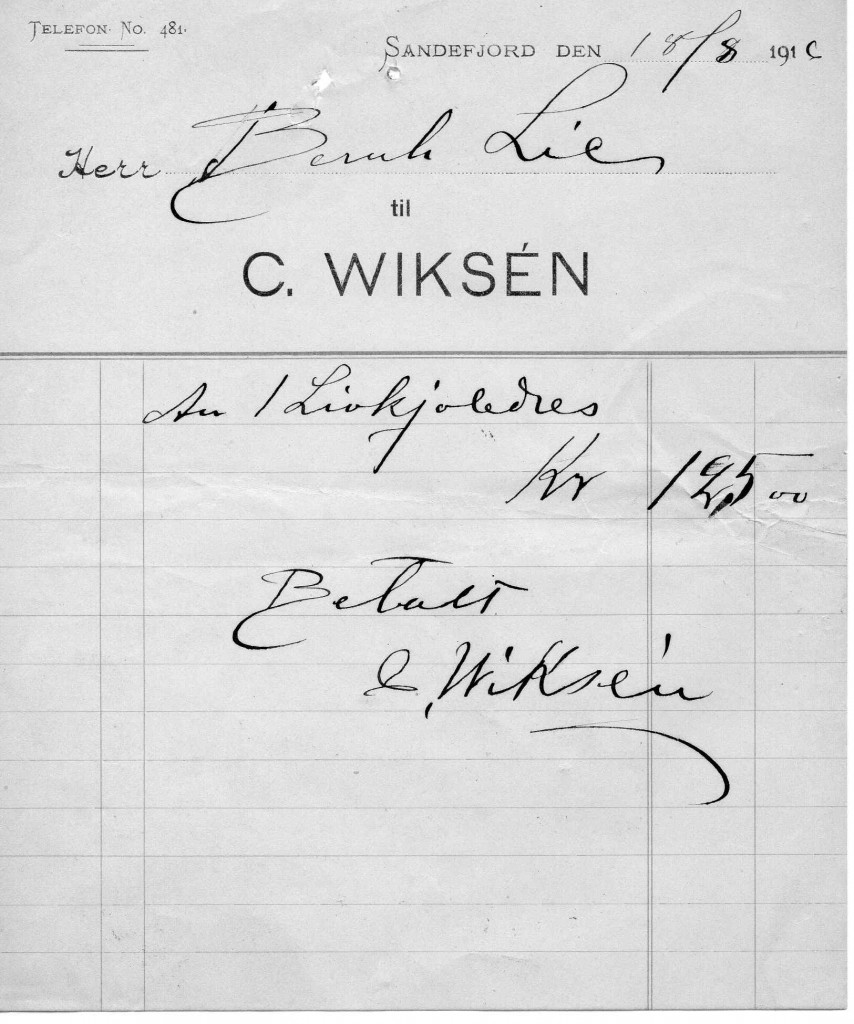 TELEFON No. 481.
SANDEFJORD DEN 18/8 1916
Herr Bernh Lie
til
C. WIKSÉN
An 1 Livkjoledres
Kr 125 00
Betalt
C. Wiksén